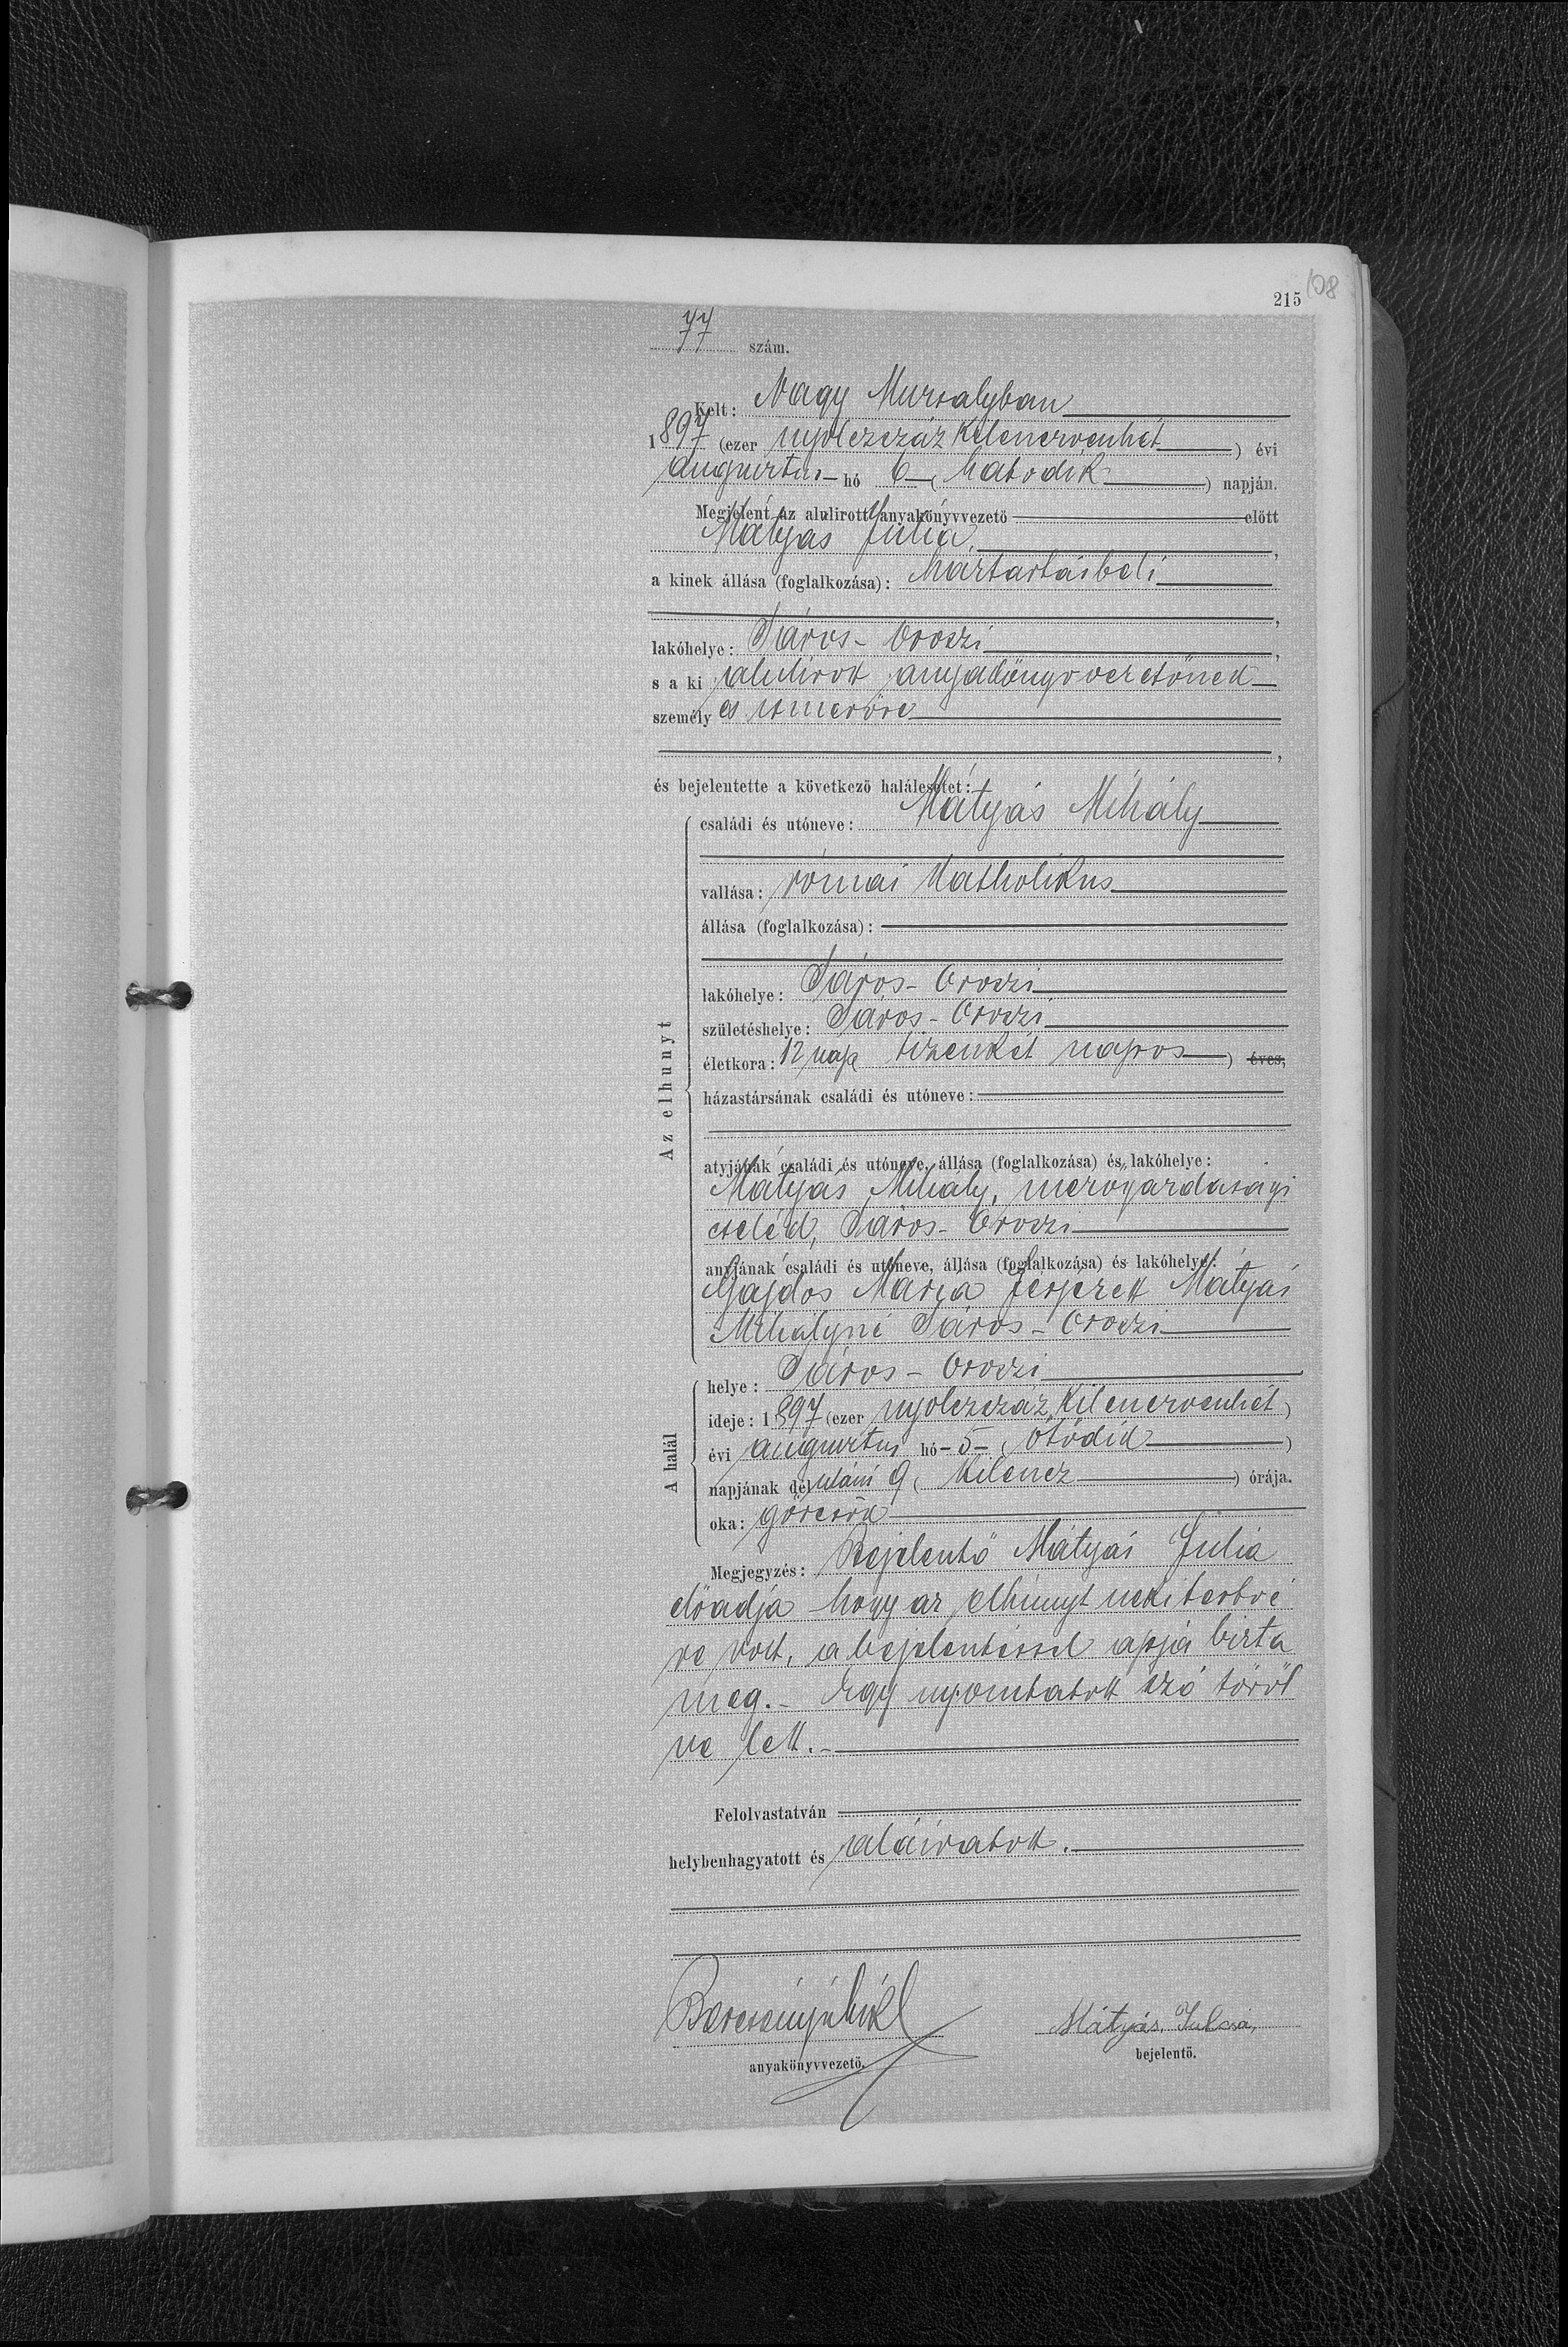 215
108
77 szám.
Kelt: Nagy Muzsalyban
1897 (ezer nyolczszáz kilenczvenhét ) évi
augusztus hó 6 ( hatodik ) napján.
Megjelent az alulirott anyakönyvvezető előtt
Mátyás Julia,
a kinek állása (foglalkozása): háztartásbeli
lakóhelye: Sáros-Oroszi,
s a ki alulirott anyakönyvvezetőnek
személyes ismerőse
és bejelentette a következő halálesetet:
Az elhunyt
családi és utóneve: Mátyás Mihály
vallása: római katholikus
állása (foglalkozása):
lakóhelye: Sáros-Oroszi
születéshelye: Sáros-Oroszi
életkora: 12 nap tizenkét napos ) éves,
házastársának családi és utóneve:
atyjának családi és utóneve, állása (foglalkozása) és lakóhelye:
Mátyás Mihály, mezőgazdasági
cseléd, Sáros-Oroszi
anyjának családi és utóneve, állása (foglalkozása) és lakóhelye:
Gajdos Mária férjezett Mátyás
Mihályné Sáros-Oroszi
A halál
helye: Sáros-Oroszi
ideje: 1897 (ezer nyolczszáz kilenczvenhét)
évi augusztus hó 5 ( ötödik )
napjának délutáni 9 ( kilencz ) órája.
oka: görcsök
Megjegyzés: Bejelentő Mátyás Julia
előadja hogy az elhunyt neki testvé
re volt, a bejelentéssel apja bizta
meg. - Egy nyomtatott szó töröl
ve lett. -
Felolvastatván
helybenhagyatott és aláiratott.
anyakönyvvezető.
Mátyás Julcsa,
bejelentő.